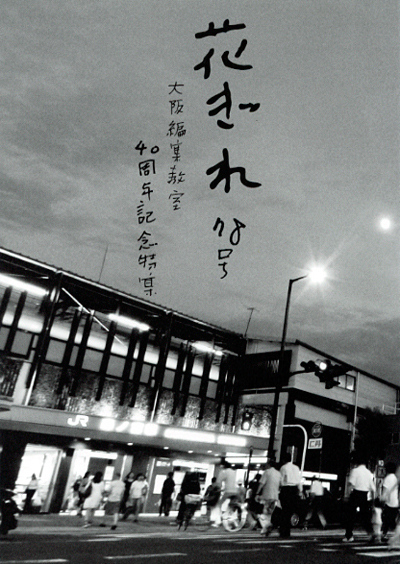 花ぎれ
78号
大阪編集教室
40周年記念特集
JR